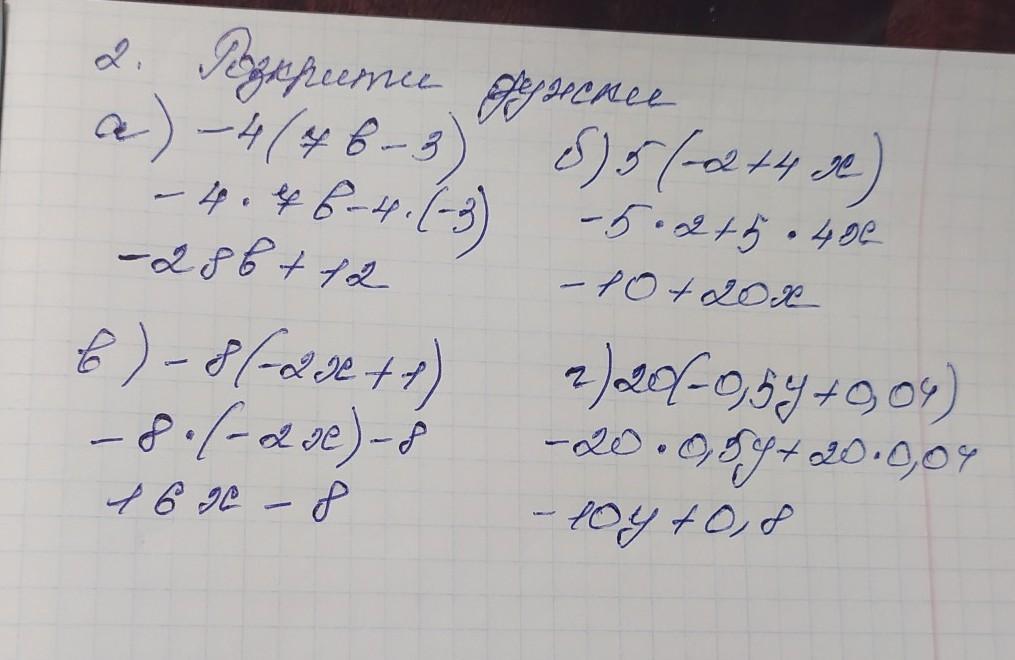 2. Розкрити дужки
а) -4(7в-3)
-4·7в-4·(-3)
-28в+12
б) 5(-2+4х)
-5·2+5·4х
-10+20х
в) -8(-2х+1)
-8·(-2х)-8
16х-8
г) 20(-0,5у+0,04)
-20·0,5у+20·0,04
-10у+0,8